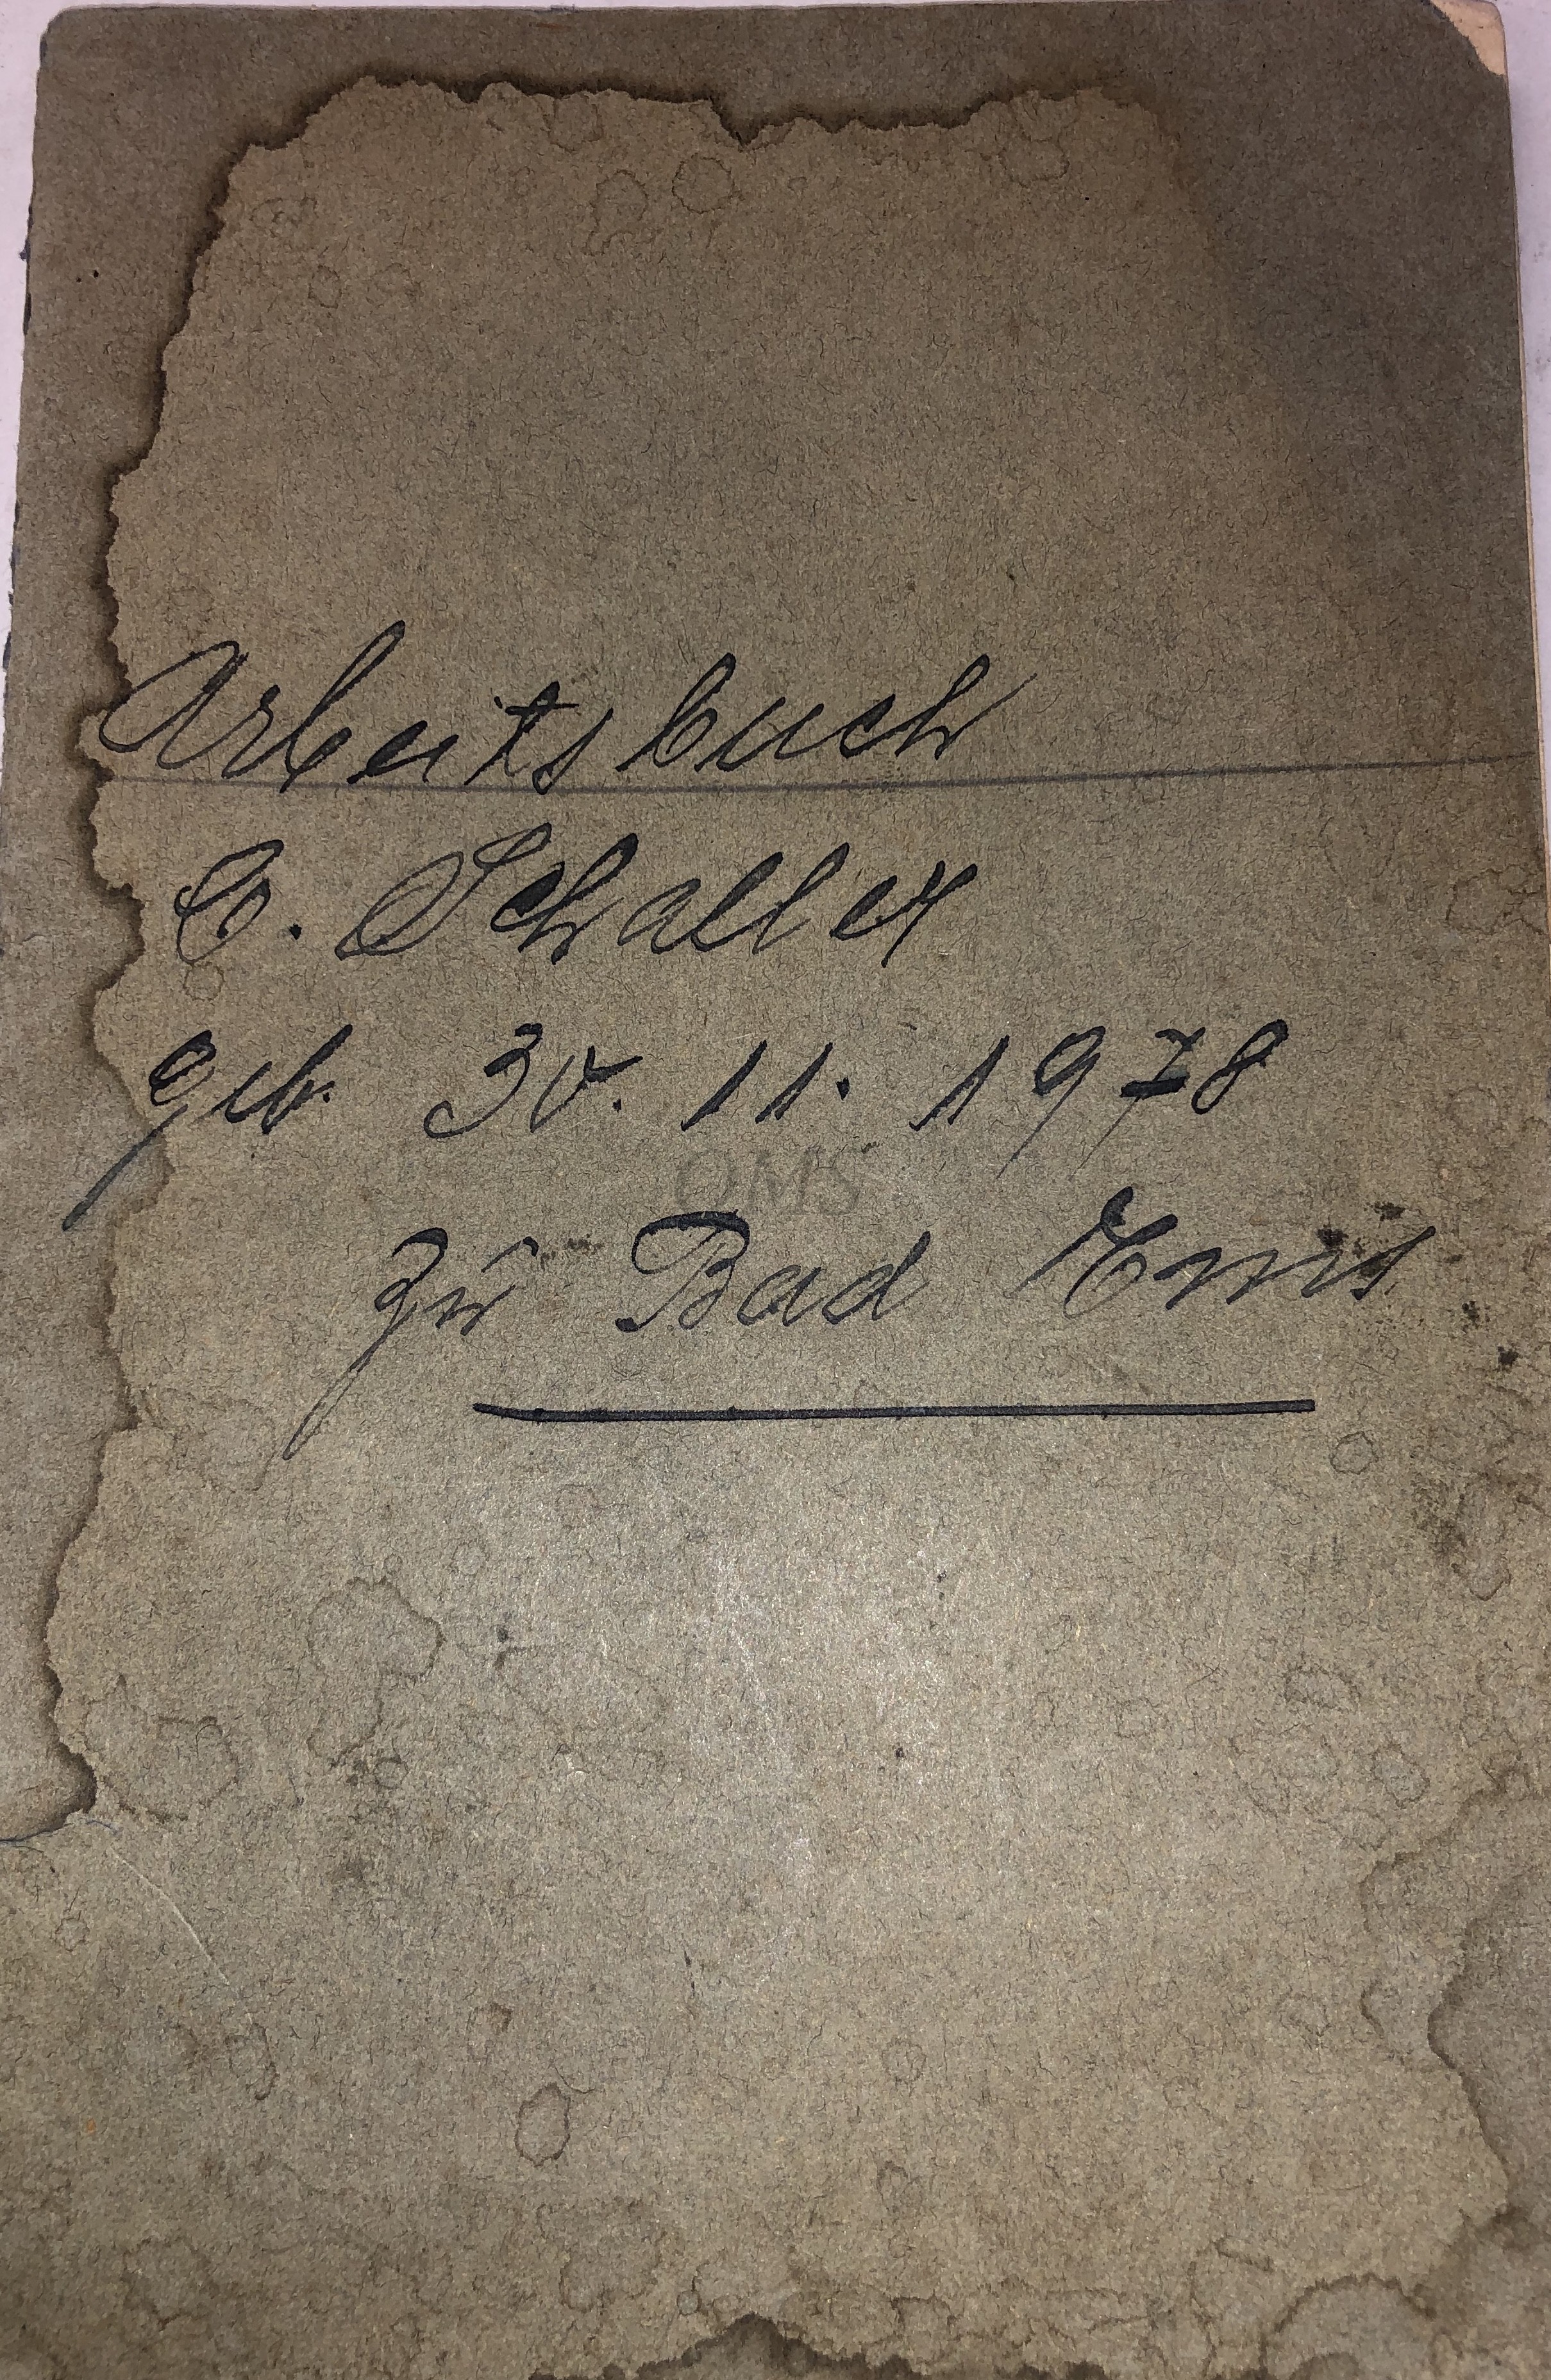 Arbeitsbuch
C. Schaller
geb. 30. 11. 1978
QMS
zu Bad Ems